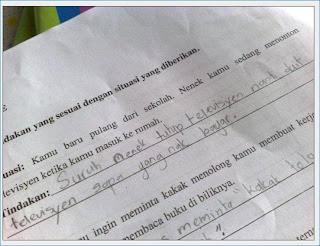 ndakan yang sesuai dengan situasi yang diberikan.
uasi: Kamu baru pulang dari sekolah. Nenek kamu sedang menonton
levisyen ketika kamu masuk ke rumah.
Tindakan: Suruh nenek tutup televisyen nanti
televisyen sapa yang nak bayar.
u ingin meminta kakak menolong kamu membuat kerj
membaca buku di biliknya.
meminta "kakak tolo